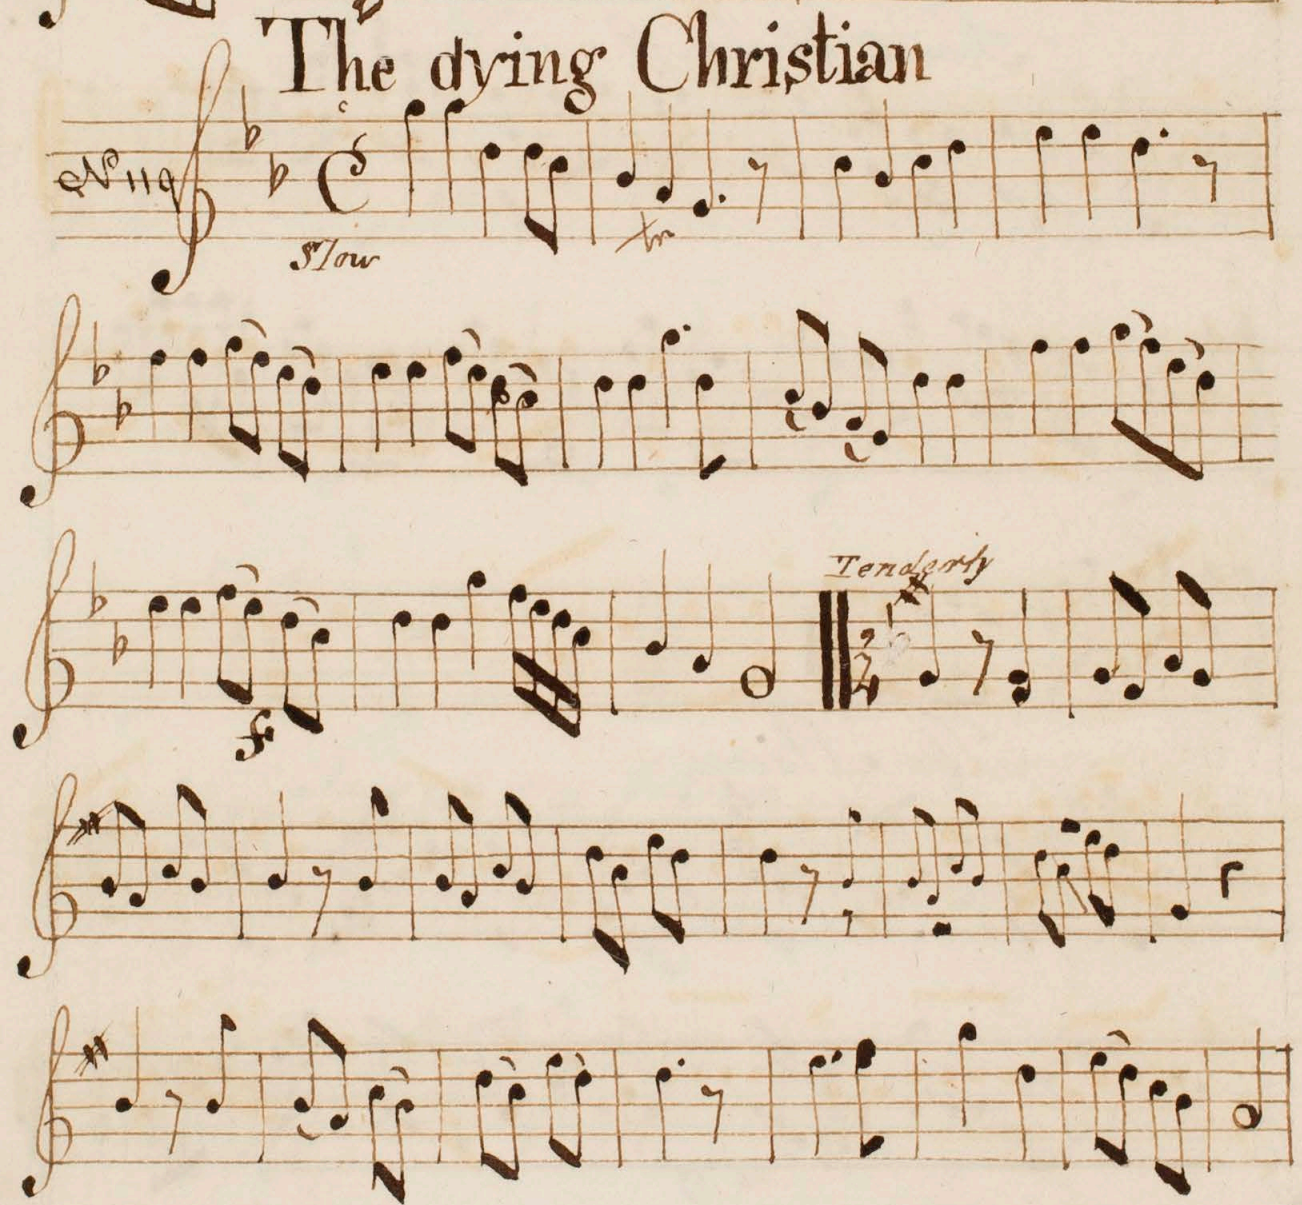 The dying Christian
No 119
Slow
tr
Tenderly
2
4